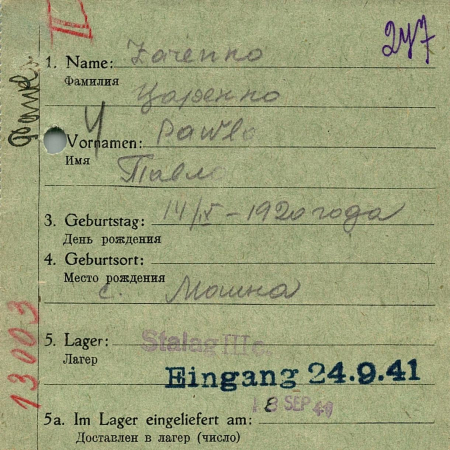 II
247
1. Name: Zarenko
Фамилия
Царенко
Ч
Vornamen: Pawlo
Имя
Павло
3. Geburtstag: 14/IX – 1920 года
День рождения
4. Geburtsort:
Место рождения
с.
13003
5. Lager: Stalag IIIc.
Лагер
Eingang 24.9.41
18 SEP
5a. Im Lager eingeliefert am:
Доставлен в лагер (число)